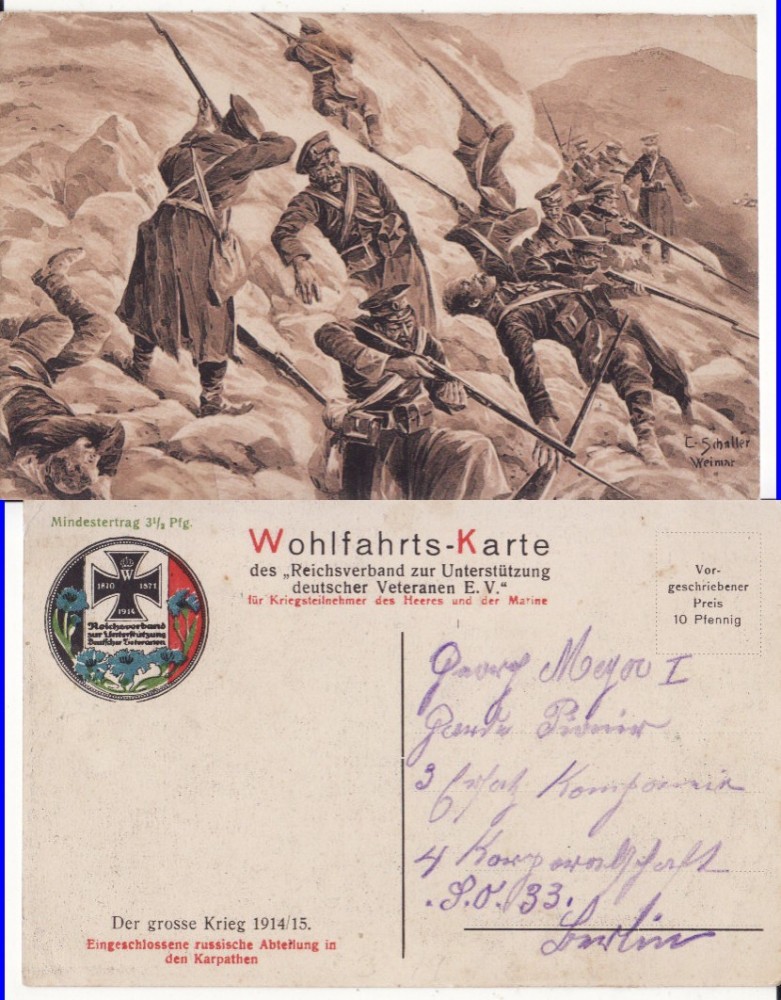 E. Schaller
Weimar
Mindestertrag 3½ Pfg.
Wohlfahrts-Karte
des „Reichsverband zur Unterstützung
deutscher Veteranen E. V.“
für Kriegsteilnehmer des Heeres und der Marine
W
1870 1871
1914
Reichsverband
zur Unterstützung
Deutscher Veteranen
Vor-
geschriebener
Preis
10 Pfennig
Georg Meyer I
Garde Pionier
3 Ersatz Kompanie
4 Korporalschaft
S.O. 33.
Berlin
Der grosse Krieg 1914/15.
Eingeschlossene russische Abteilung in
den Karpathen